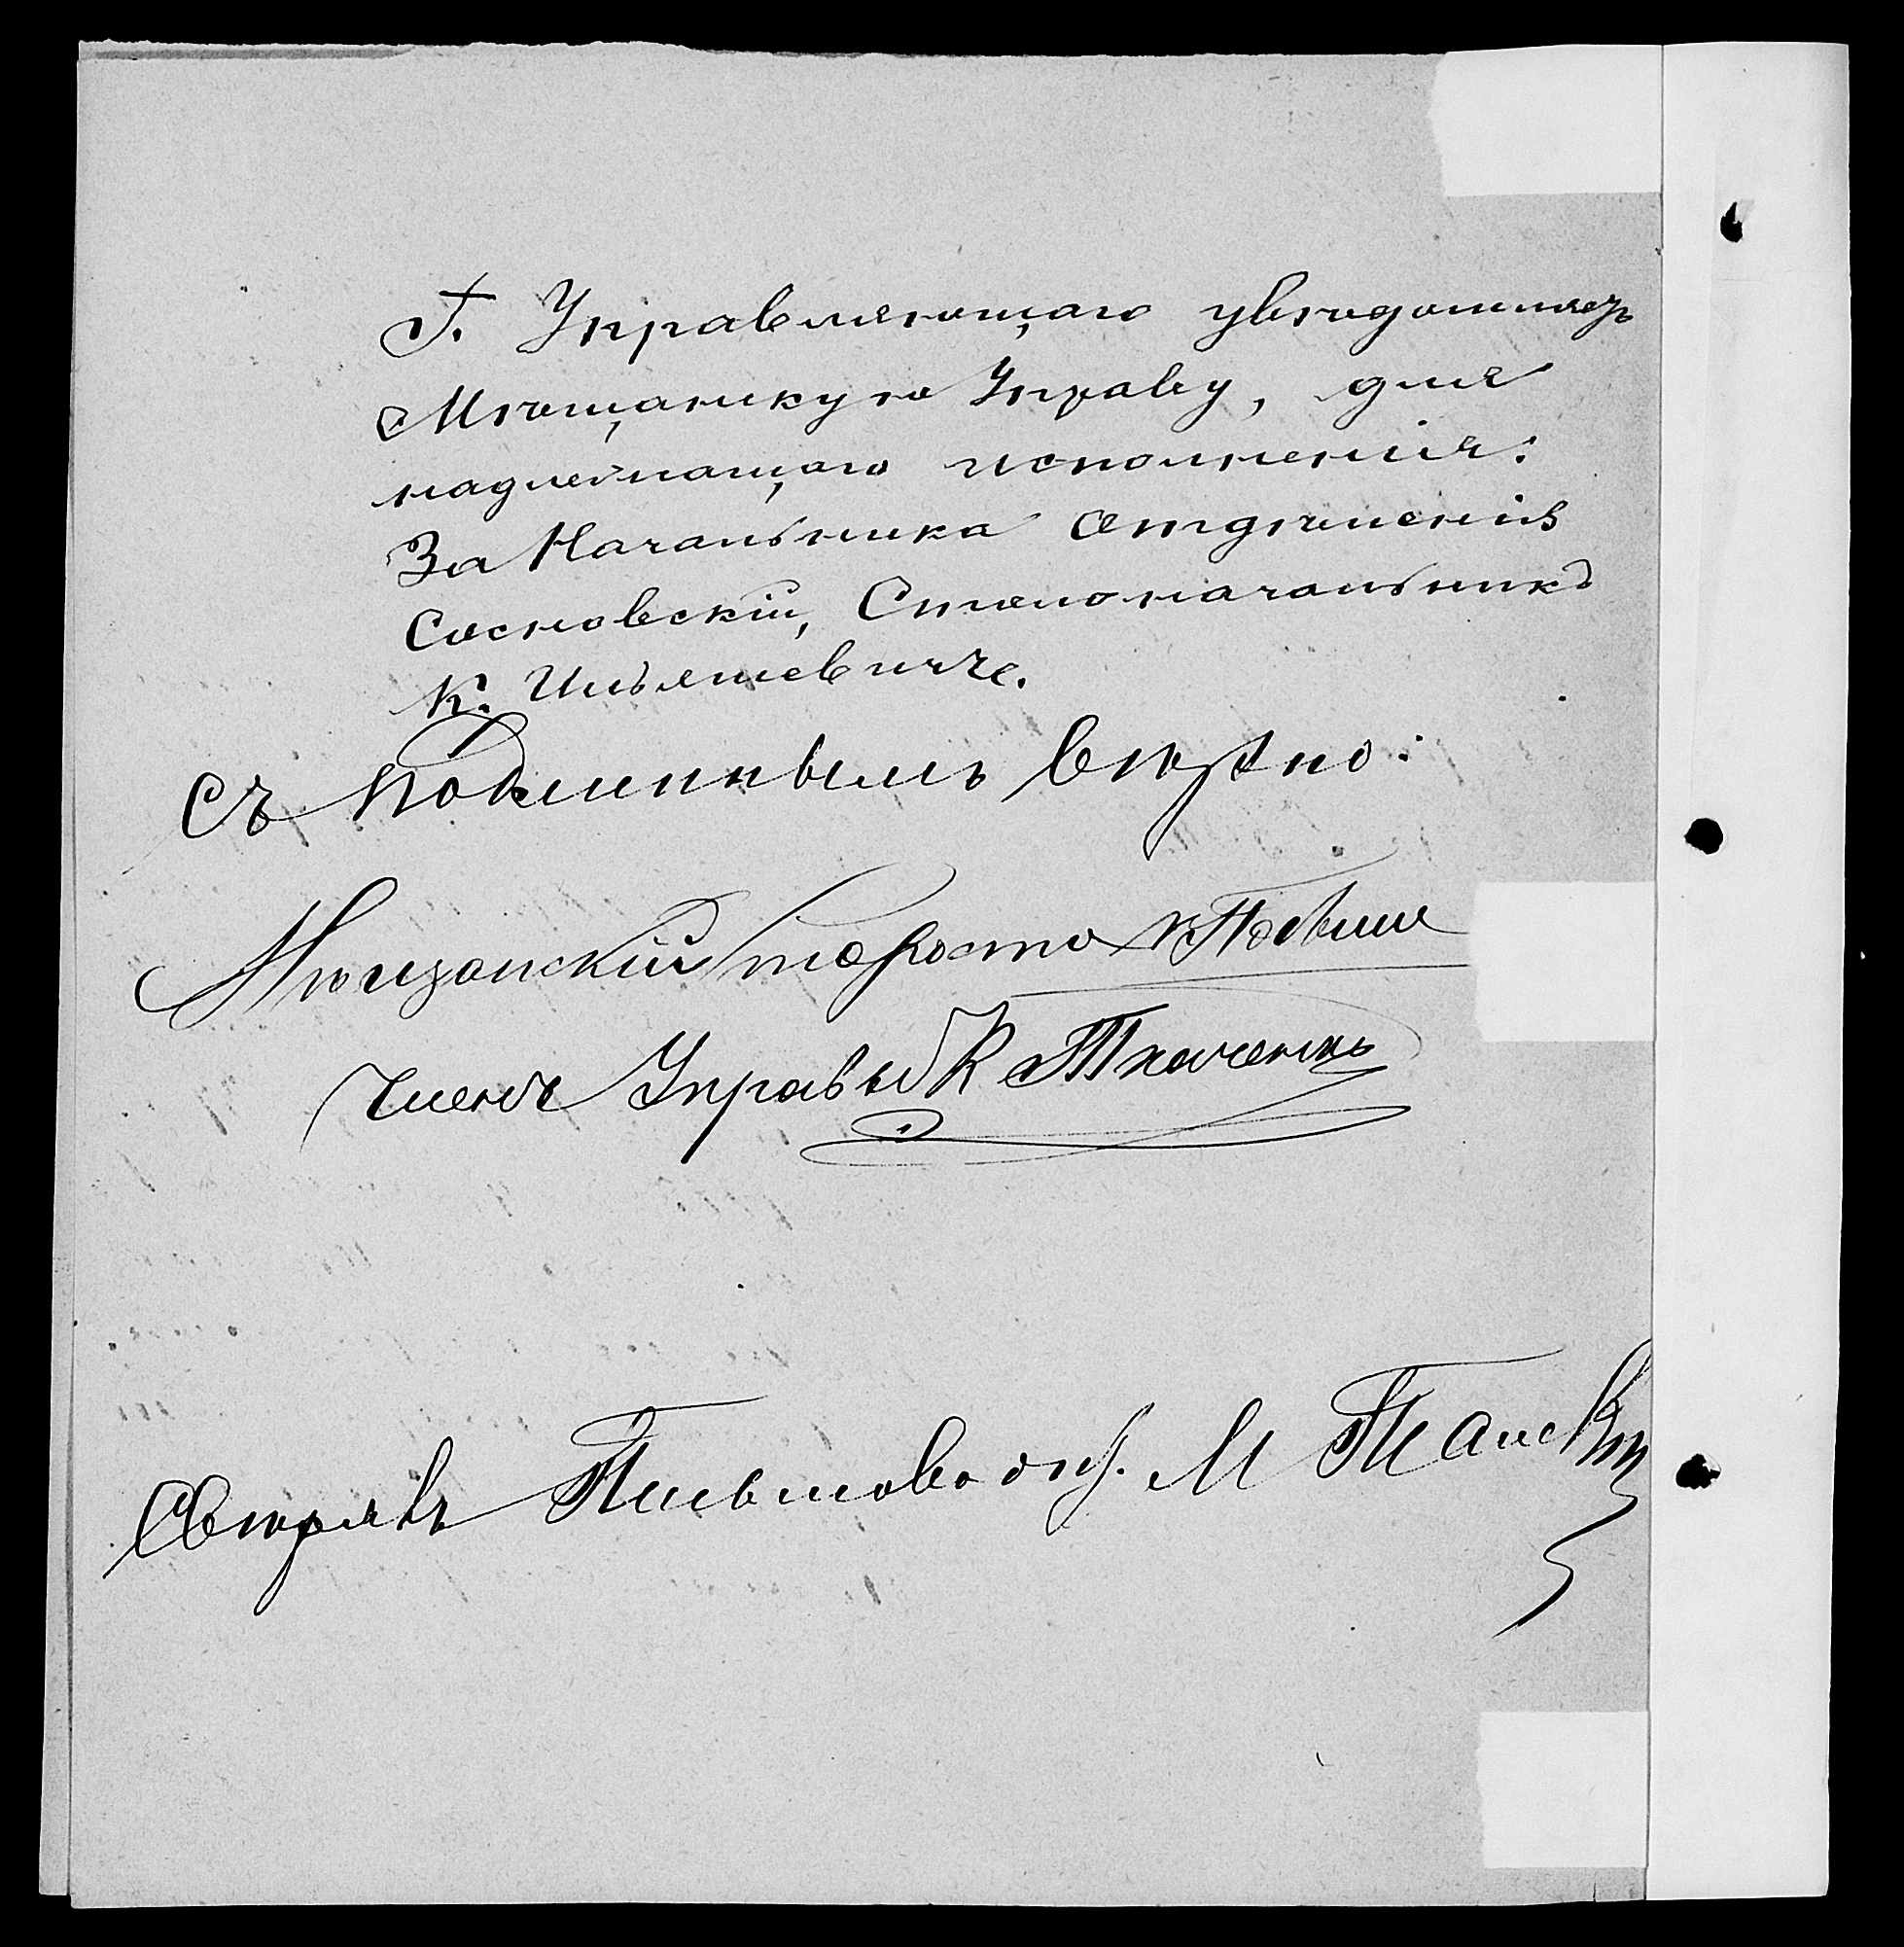 Г. Управляющаго увѣдомляетъ
Мѣщанскую Управу, для
надлежащаго исполненія:
За Начальника Отдѣленія
Сосновскій, Столоначальникъ
К. Ильяшевичъ.
Съ подлиннымъ вѣрно:
Мѣщанскій Староста
Членъ Управы К Ткаченко
Свѣрялъ Письмовод.